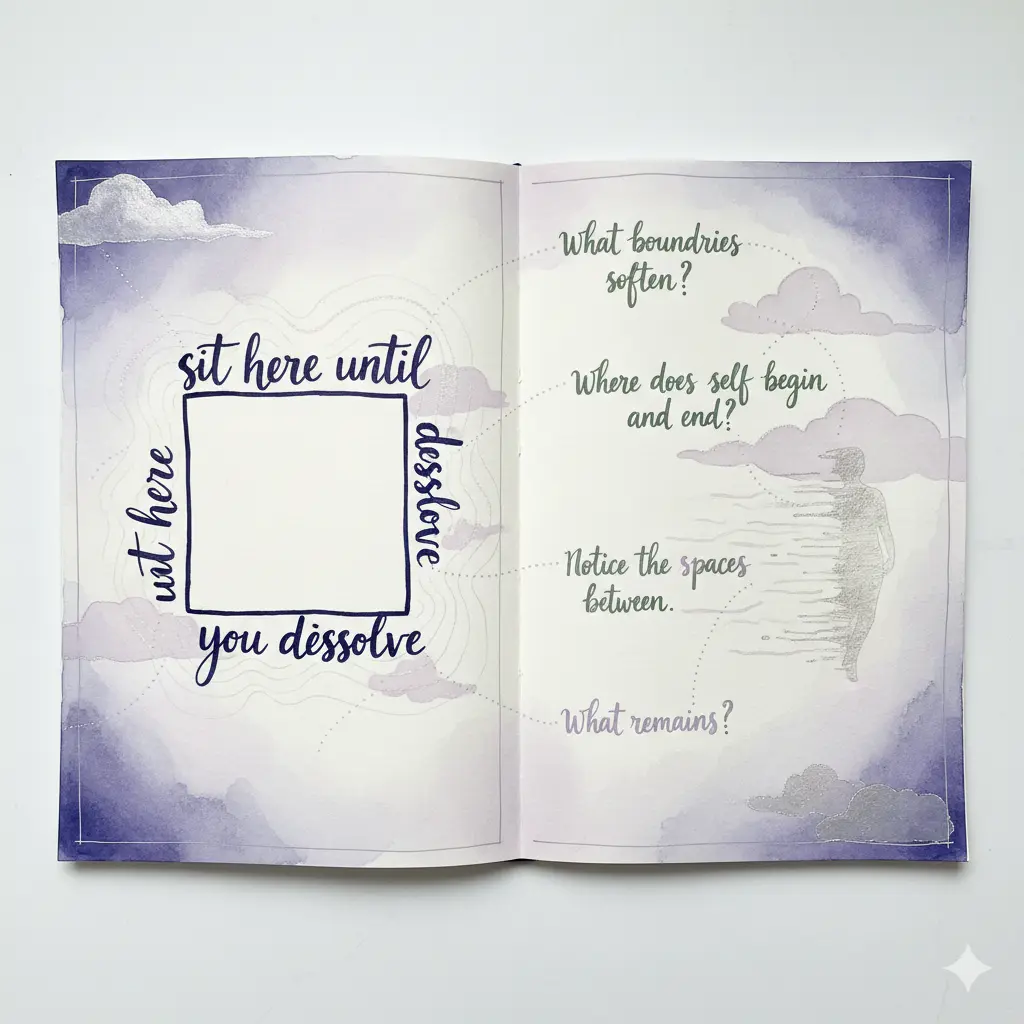 sit here until
desslove
you dèssolve
uıt here
What boundries
soften?
Where does self begin
and end?
Notice the spaces
between.
What remains?